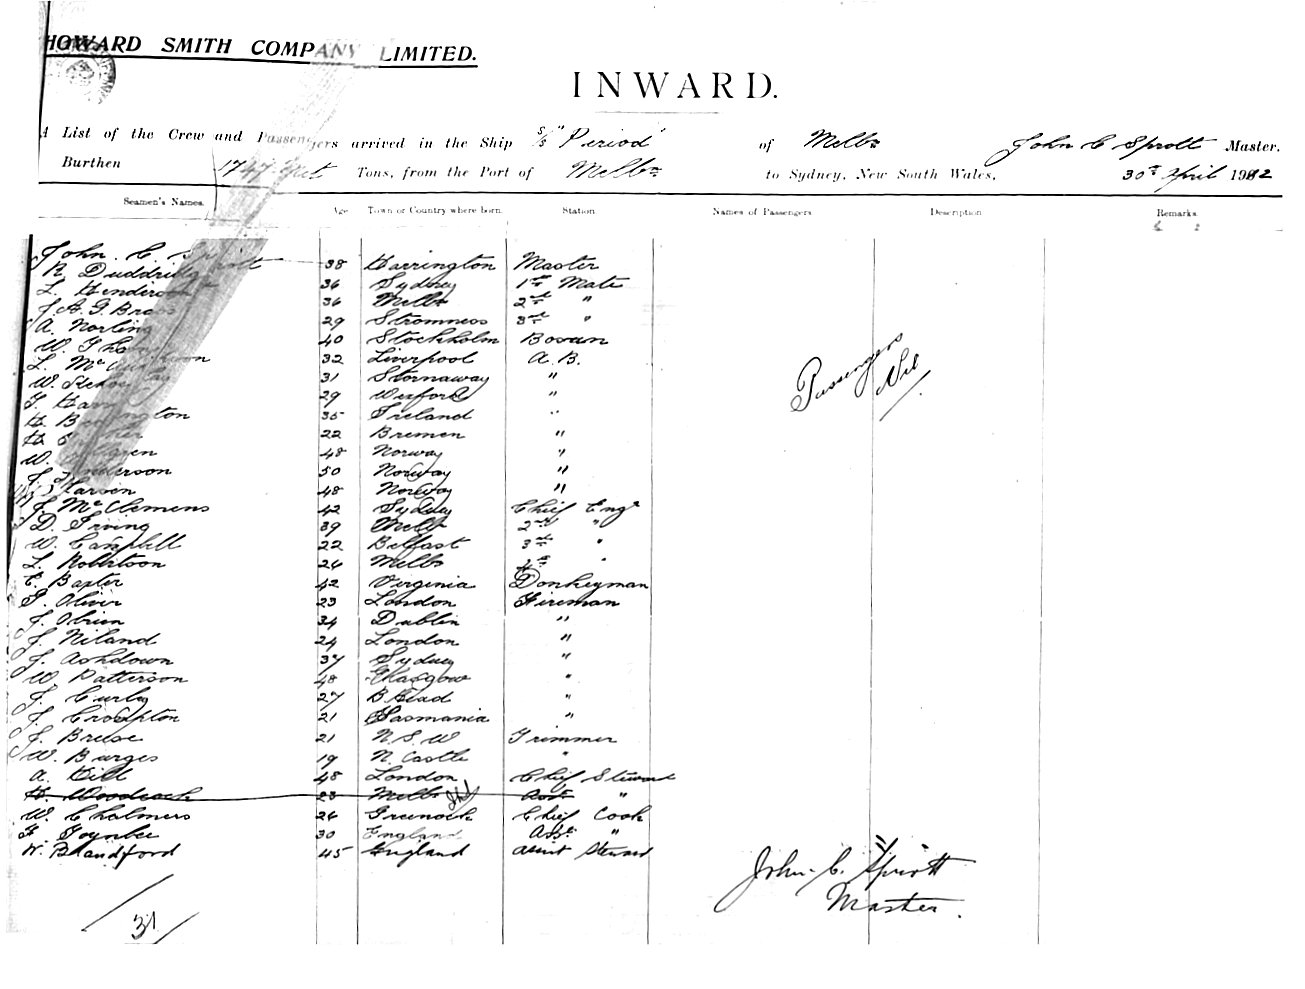 HOWARD SMITH COMPANY LIMITED.
INWARD.
A List of the Crew and Passengers arrived in the Ship S/S "Period" of Melbn John C Sprott Master.
Burthen 1747 Net Tons, from the Port of Melbn to Sydney, New South Wales, 30th April 1902
Seamen's Names. Age Town or Country where born. Station. Names of Passengers. Description Remarks
John C. Sprott 38 Harrington Master
R Duddridge 36 Sydney 1st Mate
L. Henderson 36 Melbn 2nd "
J. A. G. Brass 29 Stromness 3rd "
A. Norling 40 Stockholm Bosun
W. 32 Liverpool A.B.
L. Mc 31 Stornaway "
W. 29 Wexford "
T. 35 Ireland "
H. 22 Bremen "
H. 48 Norway "
W. 50 Norway "
J. Anderson 48 Norway "
Larsen
J. McClemens 42 Sydney Chief Engr
D. Irving 39 Melbn 2nd "
W. Campbell 22 Belfast 3rd "
L. Robertson 26 Melbn 4th "
E. Baxter 42 Virginia Donkeyman
P. Oliver 23 London Fireman
J. Obrien 34 Dublin "
J. Niland 24 London "
J. Ashdown 37 Sydney "
W. Patterson 48 Glasgow "
J. Curby 27 B Head "
J. Crompton 21 Tasmania "
J. Breese 21 N.S.W Trimmer
W. Burges 19 N. Castle "
A. Hill 48 London Chief Steward
H. Woodcock 23 Melbn Asst "
W. Chalmers 26 Greenock Chief Cook
F. Toynbee 30 England Asst "
W. Blandford 45 England Assist Steward
Passengers Nil
John C. Sprott
Master.
31